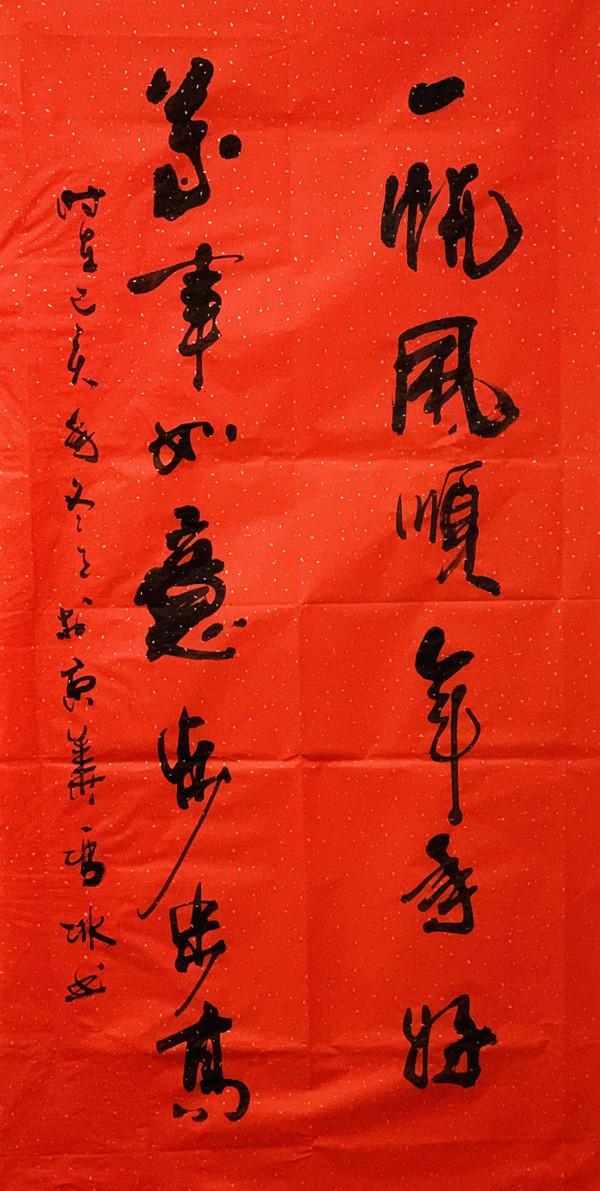 一帆風順年年好
萬事如意步步高
時在己亥年冬月於京華雪冰書